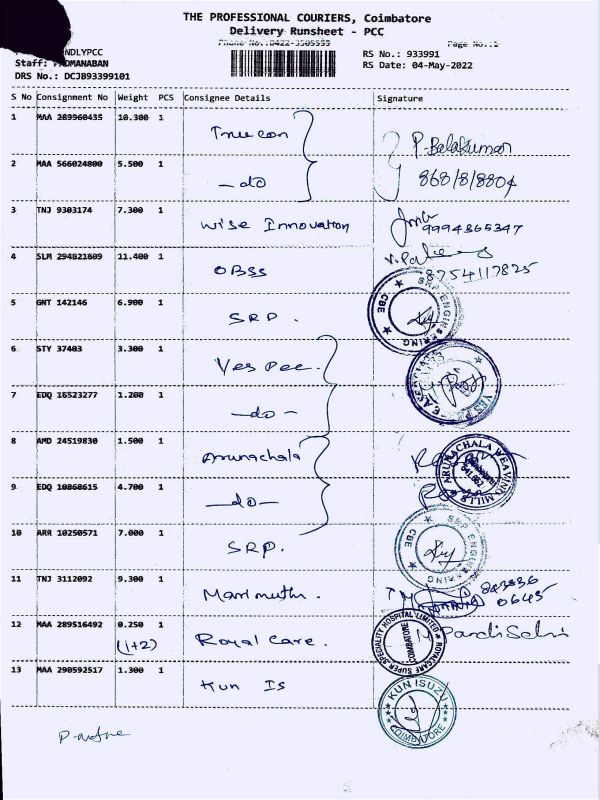 THE PROFESSIONAL COURIERS, Coimbatore
Delivery Runsheet - PCC
Phone No.:0422-3505555 Page No.:1
NDLYPCC RS No.: 933991
Staff: PADMANABAN RS Date: 04-May-2022
DRS No.: DCJ893399101
S No Consignment No Weight PCS Consignee Details Signature
1 MAA 289960435 10.300 1 Truecon P. Balakumar
2 MAA 566024800 5.500 1 -do 868/8/8804
3 TNJ 9303174 7.300 1 Wise Innovation 9994365347
4 SLM 294821609 11.400 1 OBSS 8754117825
5 GNT 142146 6.900 1 SRP. SRP ENGINEERING CBE
6 STY 37403 3.300 1 Yes Pee.
7 EDQ 16523277 1.200 1 -do-
8 AMD 24519830 1.500 1 Arunachala ARUNACHALA WEAVING MILLS
9 EDQ 10868615 4.700 1 -do-
10 ARR 10250571 7.000 1 SRP. SRP ENGINEERING CBE
11 TNJ 3112092 9.300 1 Marimuthu.
12 MAA 289516492 0.250 1 Royal Care. ROYALCARE SUPER SPECIALITY HOSPITAL LIMITED COIMBATORE
(1+2)
13 MAA 290592517 1.300 1 Kun Is KUN ISUZU COIMBATORE